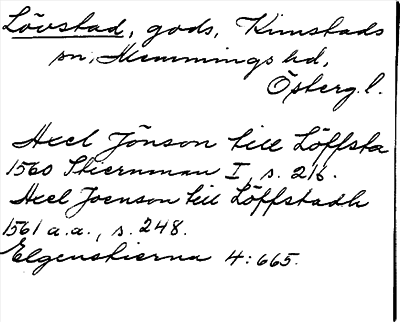 Lövstad, gods, Kimstads
sn, Memmings hd,
Österg. l.
Axel Jönson till Löffsta
1560 Stiernman I, s. 216.
Axel Joenson till Löffstadh
1561 a.a., s. 248.
Elgenstierna 4:665.